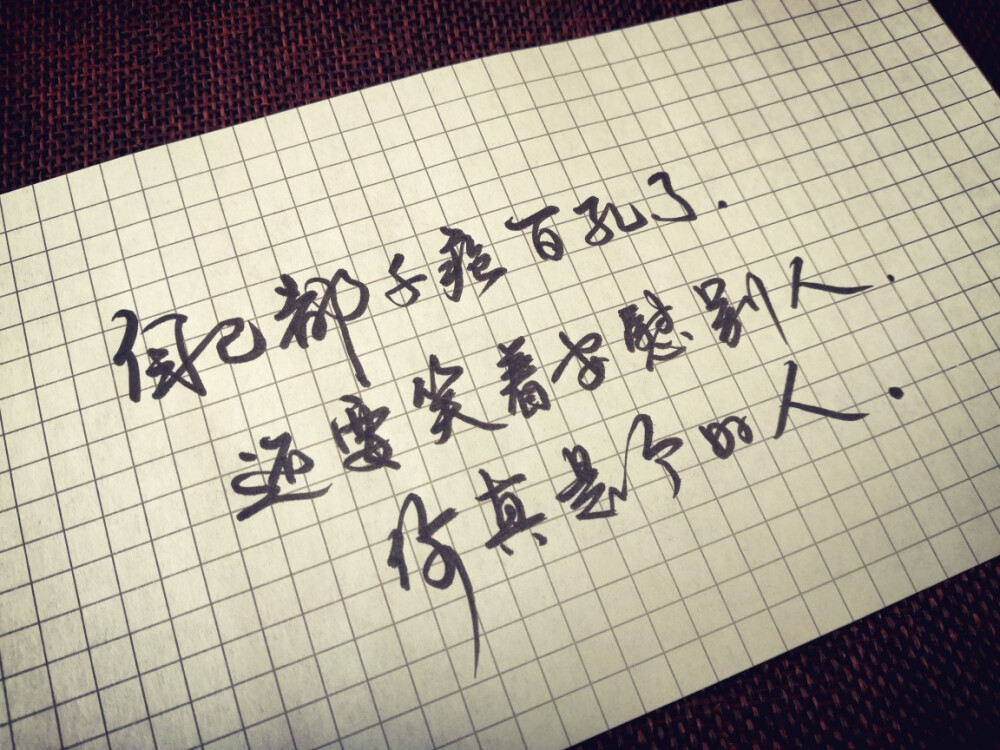 己都千疮百孔了.
还要笑着安慰别人.
你真是个人.